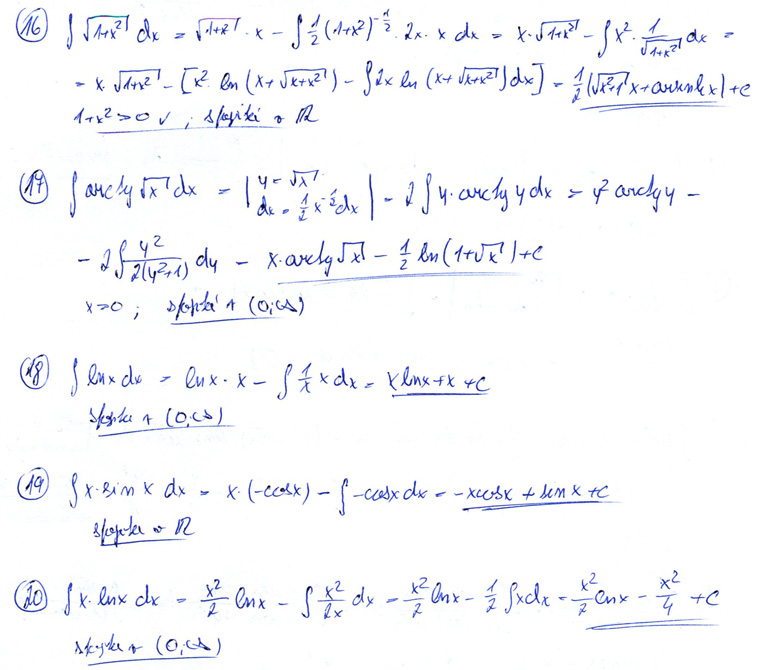 16 ∫ √(1+x²) dx = √(1+x²) · x − ∫ ½ (1+x²)^(−½) · 2x · x dx = x · √(1+x²) − ∫ x² · 1/√(1+x²) dx =
= x · √(1+x²) − [x² · ln (x+√(x+x²)) − ∫ 2x ln (x+√(x+x²)) dx] = ½ (√(x²+1) x + arcsinh x) + c
1+x² > 0 ✓ ; R
17 ∫ arctg √x dx = | y = √x
dx = ½ x^(−½) dx | − 2 ∫ y · arctg y dx = y² arctg y −
− 2 ∫ y²/(2(y²+1)) dy − x · arctg √x − ½ ln (1+√x) + c
x > 0 ; (0,∞)
18 ∫ ln x dx = ln x · x − ∫ 1/x x dx = x ln x + x + c
(0,∞)
19 ∫ x · sin x dx = x · (−cos x) − ∫ −cos x dx = −x cos x + sin x + c
R
20 ∫ x · ln x dx = x²/2 ln x − ∫ x²/2x dx = x²/2 ln x − ½ ∫ x dx = x²/2 ln x − x²/4 + c
(0,∞)